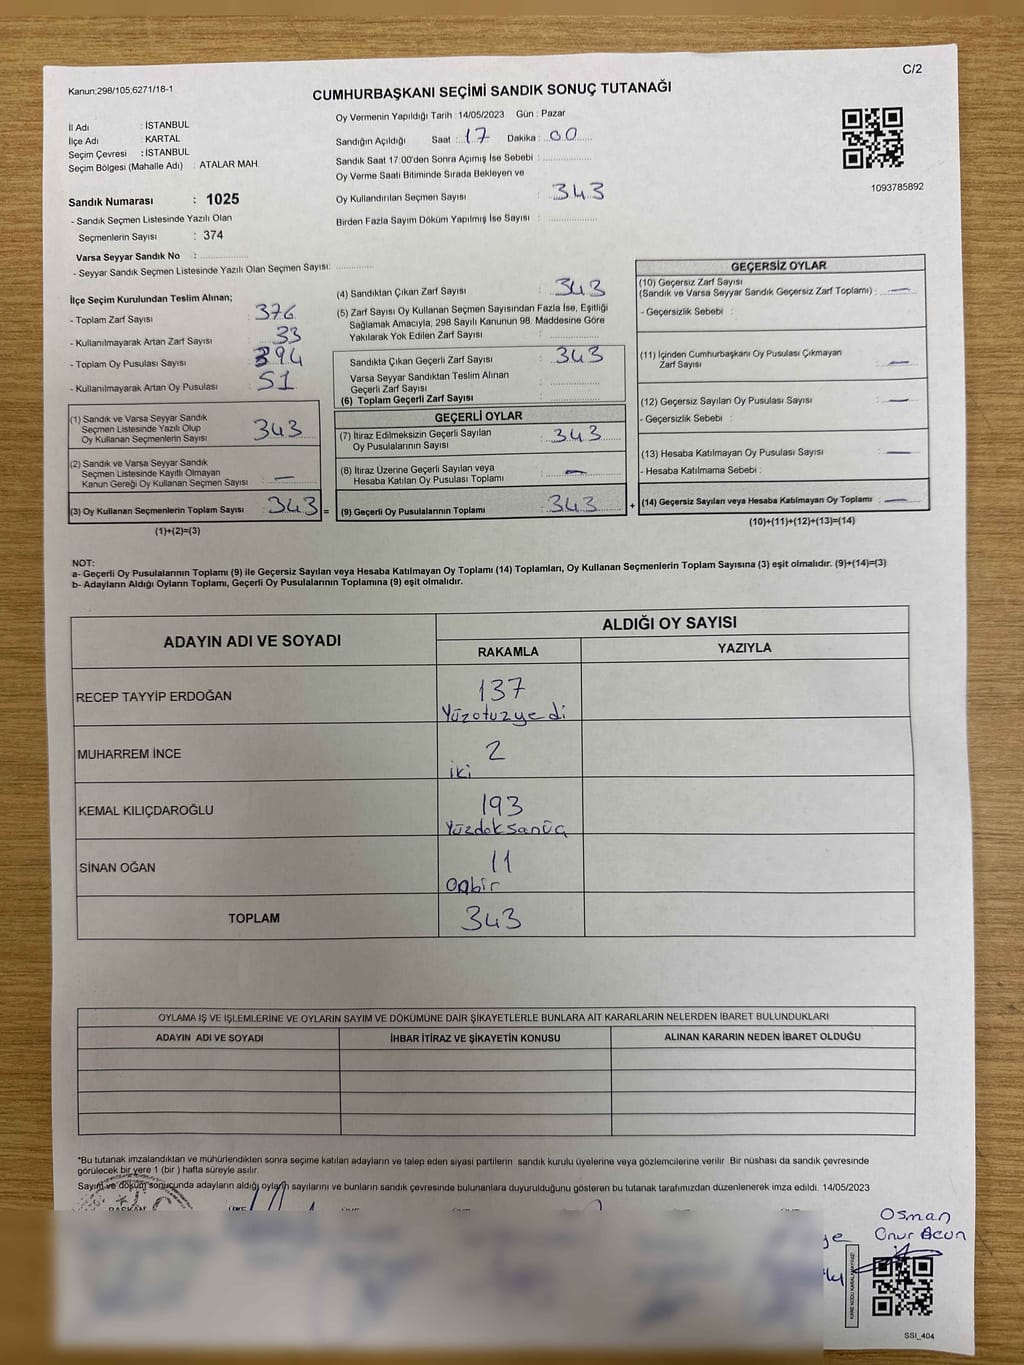 C/2
Kanun:298/105;6271/18-1
CUMHURBAŞKANI SEÇİMİ SANDIK SONUÇ TUTANAĞI
İl Adı : İSTANBUL
İlçe Adı : KARTAL
Seçim Çevresi : İSTANBUL
Seçim Bölgesi (Mahalle Adı) : ATALAR MAH.
Sandık Numarası : 1025
- Sandık Seçmen Listesinde Yazılı Olan
Seçmenlerin Sayısı : 374
Varsa Seyyar Sandık No :
- Seyyar Sandık Seçmen Listesinde Yazılı Olan Seçmen Sayısı:
Oy Vermenin Yapıldığı Tarih : 14/05/2023 Gün : Pazar
Sandığın Açıldığı Saat : 17 Dakika : 00
Sandık Saat 17.00'den Sonra Açımış İse Sebebi :
Oy Verme Saati Bitiminde Sırada Bekleyen ve
Oy Kullandırılan Seçmen Sayısı : 343
Birden Fazla Sayım Döküm Yapılmış İse Sayısı :
1093785892
İlçe Seçim Kurulundan Teslim Alınan;
- Toplam Zarf Sayısı : 376
- Kullanılmayarak Artan Zarf Sayısı : 33
- Toplam Oy Pusulası Sayısı : 394
- Kullanılmayarak Artan Oy Pusulası : 51
(1) Sandık ve Varsa Seyyar Sandık
Seçmen Listesinde Yazılı Olup
Oy Kullanan Seçmenlerin Sayısı : 343
(2) Sandık ve Varsa Seyyar Sandık
Seçmen Listesinde Kayıtlı Olmayan
Kanun Gereği Oy Kullanan Seçmen Sayısı : —
(3) Oy Kullanan Seçmenlerin Toplam Sayısı : 343 =
(1)+(2)=(3)
(4) Sandıktan Çıkan Zarf Sayısı : 343
(5) Zarf Sayısı Oy Kullanan Seçmen Sayısından Fazla İse, Eşitliği
Sağlamak Amacıyla, 298 Sayılı Kanunun 98. Maddesine Göre
Yakılarak Yok Edilen Zarf Sayısı :
Sandıkta Çıkan Geçerli Zarf Sayısı : 343
Varsa Seyyar Sandıktan Teslim Alınan
Geçerli Zarf Sayısı :
(6) Toplam Geçerli Zarf Sayısı :
GEÇERLİ OYLAR
(7) İtiraz Edilmeksizin Geçerli Sayılan
Oy Pusulalarının Sayısı : 343
(8) İtiraz Üzerine Geçerli Sayılan veya
Hesaba Katılan Oy Pusulası Toplamı : —
(9) Geçerli Oy Pusulalarının Toplamı : 343 +
GEÇERSİZ OYLAR
(10) Geçersiz Zarf Sayısı
(Sandık ve Varsa Seyyar Sandık Geçersiz Zarf Toplamı) : —
- Geçersizlik Sebebi :
(11) İçinden Cumhurbaşkanı Oy Pusulası Çıkmayan
Zarf Sayısı : —
(12) Geçersiz Sayılan Oy Pusulası Sayısı : —
- Geçersizlik Sebebi :
(13) Hesaba Katılmayan Oy Pusulası Sayısı : —
- Hesaba Katılmama Sebebi :
(14) Geçersiz Sayılan veya Hesaba Katılmayan Oy Toplamı : —
(10)+(11)+(12)+(13)=(14)
NOT:
a- Geçerli Oy Pusulalarının Toplamı (9) ile Geçersiz Sayılan veya Hesaba Katılmayan Oy Toplamı (14) Toplamları, Oy Kullanan Seçmenlerin Toplam Sayısına (3) eşit olmalıdır. (9)+(14)=(3)
b- Adayların Aldığı Oyların Toplamı, Geçerli Oy Pusulalarının Toplamına (9) eşit olmalıdır.
ADAYIN ADI VE SOYADI
ALDIĞI OY SAYISI
RAKAMLA YAZIYLA
RECEP TAYYİP ERDOĞAN 137
Yüzotuzyedi
MUHARREM İNCE 2
iki
KEMAL KILIÇDAROĞLU 193
Yüzdoksanüç
SİNAN OĞAN 11
Onbir
TOPLAM 343
OYLAMA İŞ VE İŞLEMLERİNE VE OYLARIN SAYIM VE DÖKÜMÜNE DAİR ŞİKAYETLERLE BUNLARA AİT KARARLARIN NELERDEN İBARET BULUNDUKLARI
ADAYIN ADI VE SOYADI İHBAR İTİRAZ VE ŞİKAYETİN KONUSU ALINAN KARARIN NEDEN İBARET OLDUĞU
*Bu tutanak imzalandıktan ve mühürlendikten sonra seçime katılan adayların ve talep eden siyasi partilerin sandık kurulu üyelerine veya gözlemcilerine verilir. Bir nüshası da sandık çevresinde
görülecek bir yere 1 (bir ) hafta süreyle asılır.
Sayım ve döküm sonucunda adayların aldığı oyların sayılarını ve bunların sandık çevresinde bulunanlara duyurulduğunu gösteren bu tutanak tarafımızdan düzenlenerek imza edildi. 14/05/2023
BAŞKAN
Osman
Onur Acun
SSI_404